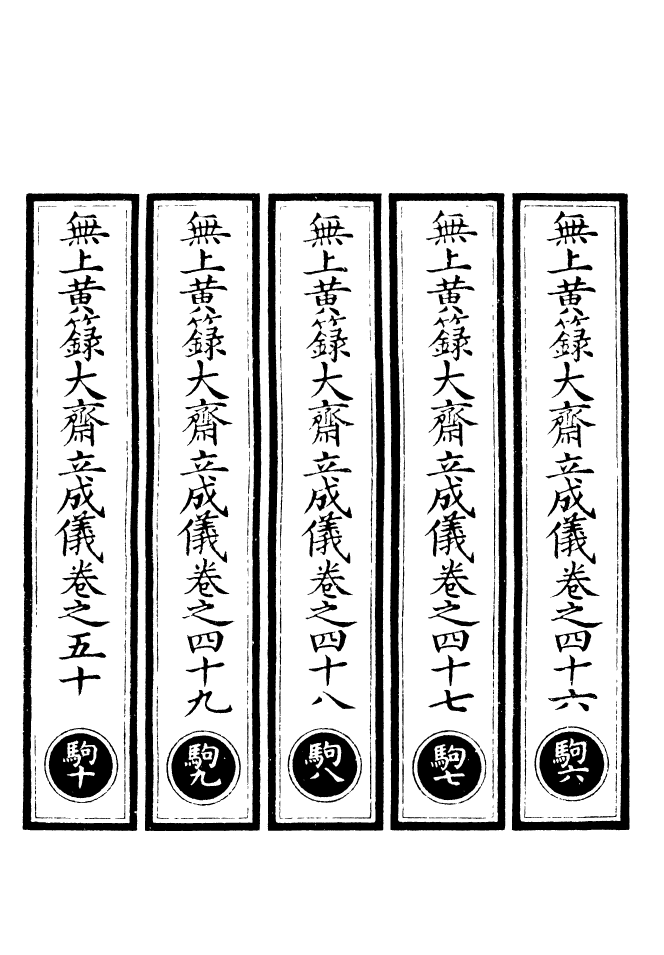 無上黄籙大齋立成儀卷之四十六
駒六
無上黄籙大齋立成儀卷之四十七
駒七
無上黄籙大齋立成儀卷之四十八
駒八
無上黄籙大齋立成儀卷之四十九
駒九
無上黄籙大齋立成儀卷之五十
駒十